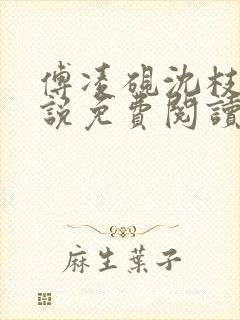 傅凌硯沈枝
說免費閱讀
麻生葉子